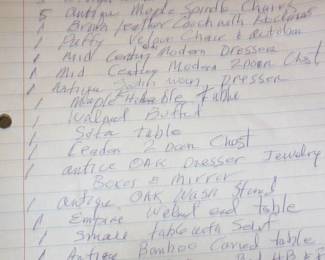 5 Antique Maple Spindle Chairs
1 Brown Leather Couch with Recliners
1 Puffy Velour Chair & Ottoman
1 Mid Century Modern Dresser
1 Mid Century Modern 2 Door Chest
1 Antique Dresser
1 Maple Table
1 Walnut Buffet
1 Sofa Table
1 2 Door Chest
1 antice OAK Dresser Jewelry
Boxes & Mirror
1 antique OAK Wash Stand
1 Empire Walnut end table
1 Small table with
1 Antique Bamboo Carved table